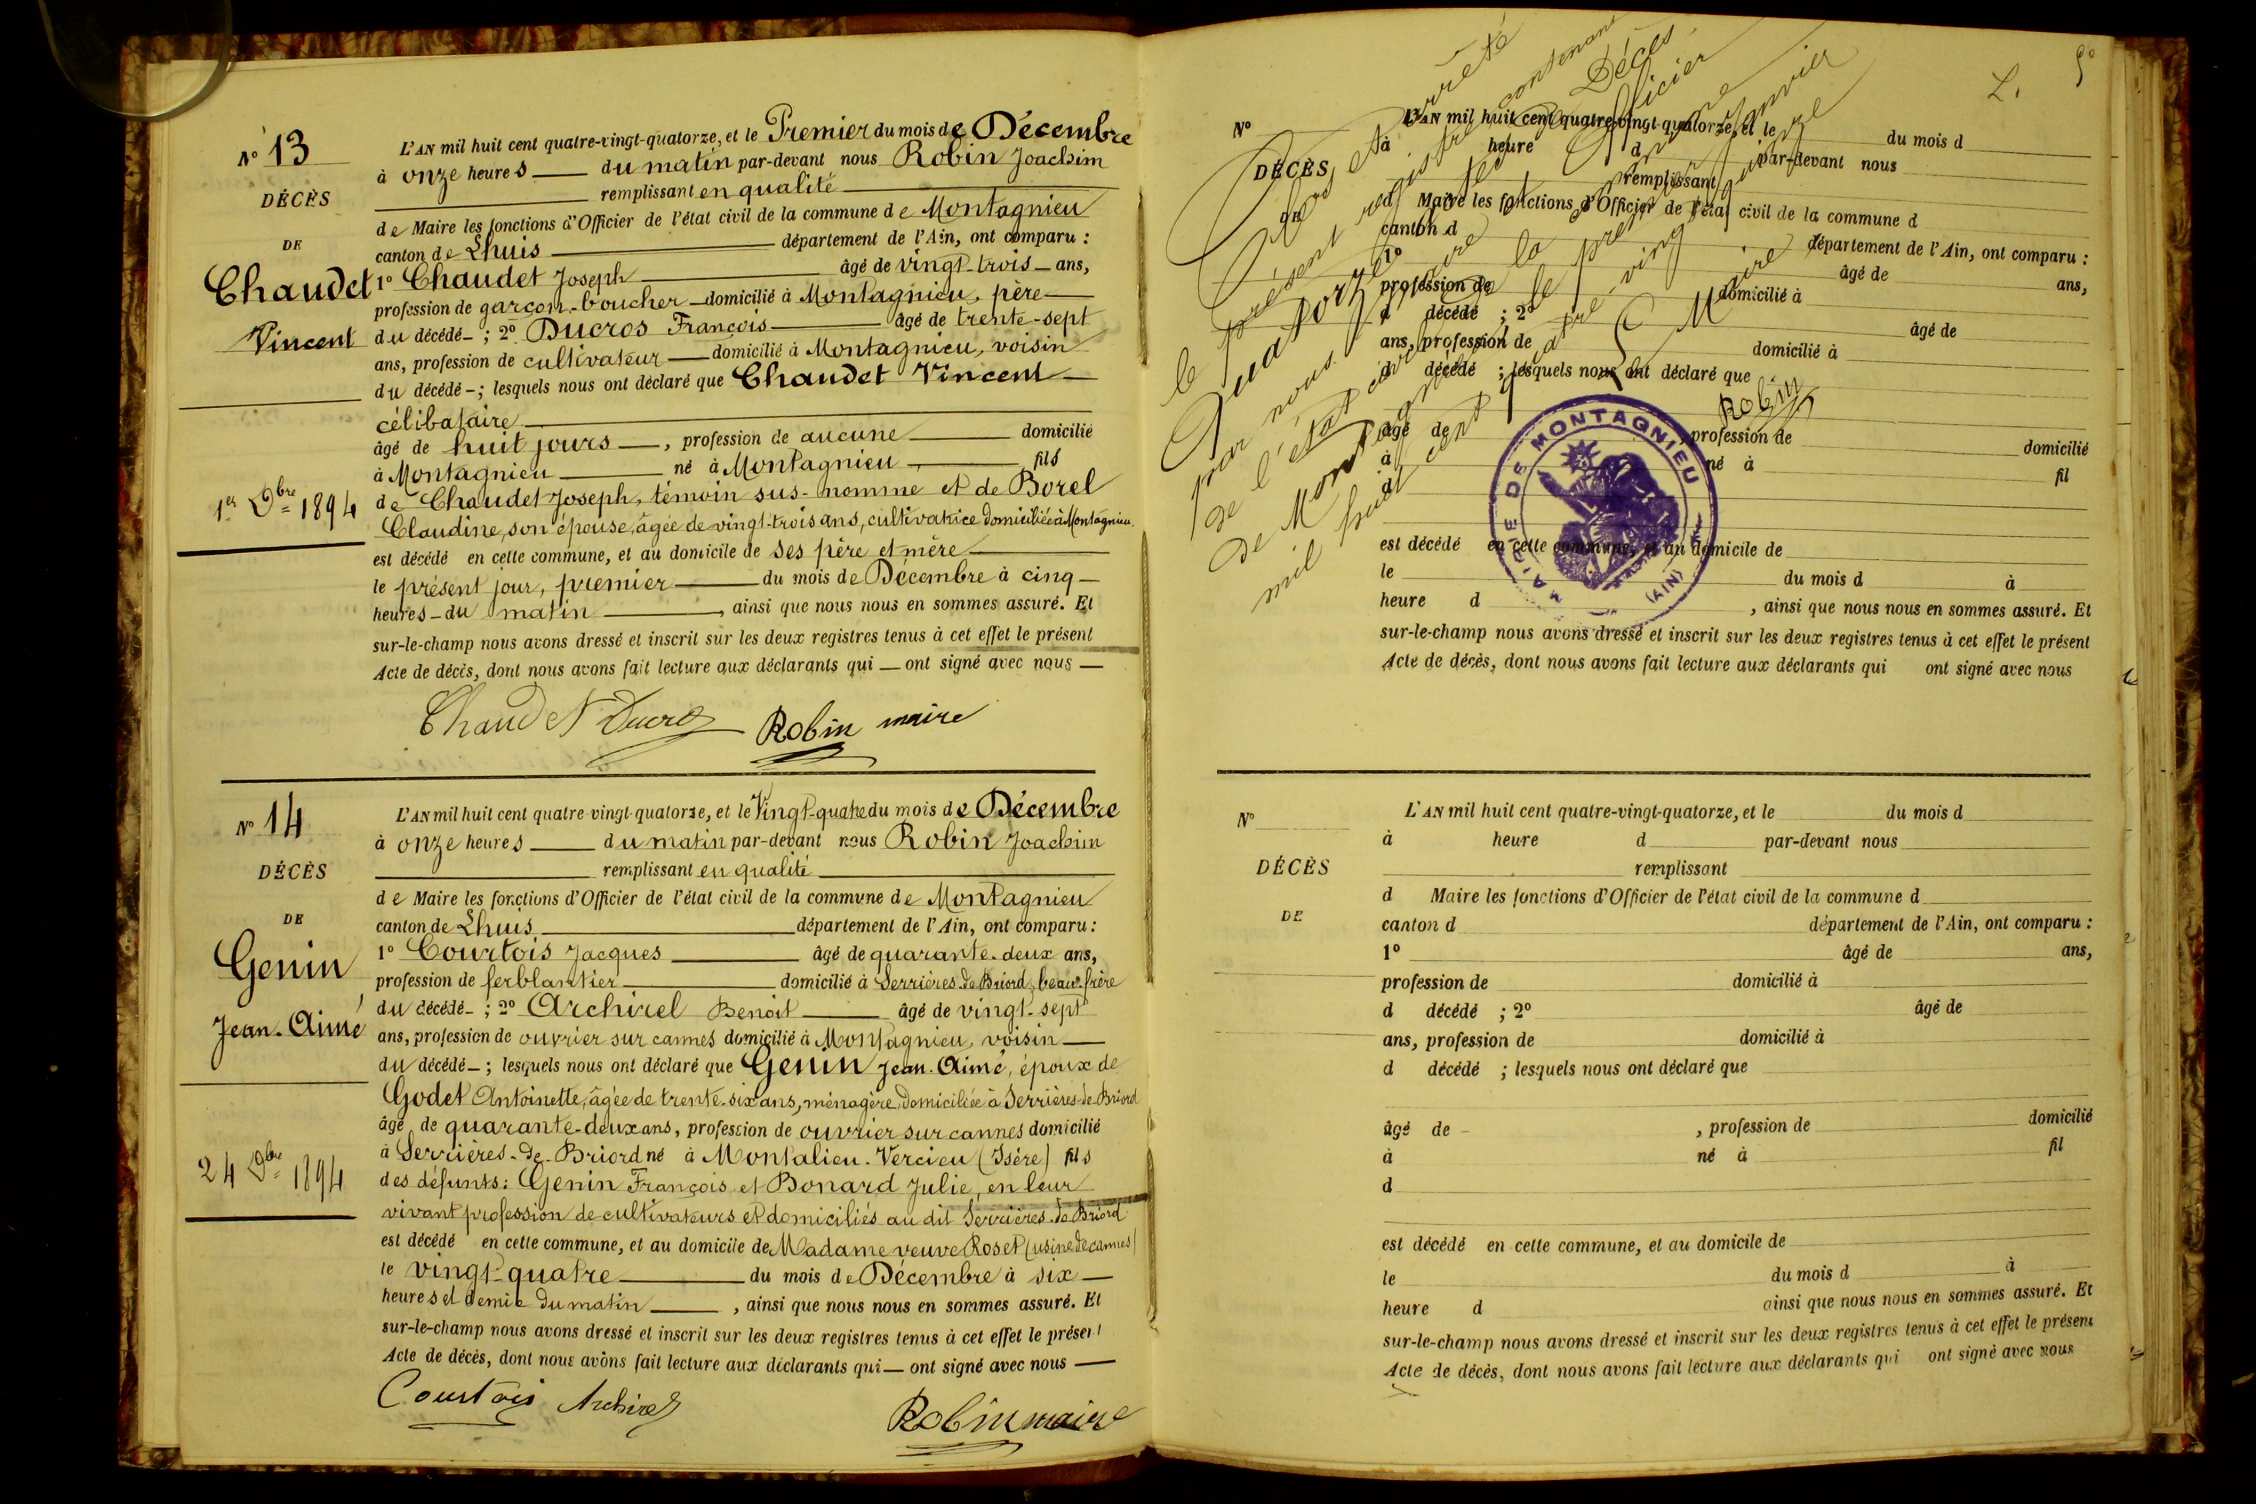 N° 13
DÉCÈS
DE
Chaudet
Vincent
1er Dbre 1894
L'AN mil huit cent quatre-vingt-quatorze, et le Premier du mois de Décembre
à onze heures du matin par-devant nous Robin Joachim
remplissant en qualité
de Maire les fonctions d'Officier de l'état civil de la commune de Montagnieu
canton de Lhuis département de l'Ain, ont comparu :
1° Chaudet Joseph âgé de vingt-trois ans,
profession de garçon-boucher domicilié à Montagnieu, père
du décédé ; 2° Ducros François âgé de trente-sept
ans, profession de cultivateur domicilié à Montagnieu, voisin
du décédé ; lesquels nous ont déclaré que Chaudet Vincent
célibataire
âgé de huit jours, profession de aucune domicilié
à Montagnieu né à Montagnieu, fils
de Chaudet Joseph, témoin sus-nommé et de Borel
Claudine, son épouse, âgée de vingt-trois ans, cultivatrice domiciliée à Montagnieu
est décédé en cette commune, et au domicile de ses père et mère
le présent jour, premier du mois de Décembre à cinq
heures du matin, ainsi que nous nous en sommes assuré. Et
sur-le-champ nous avons dressé et inscrit sur les deux registres tenus à cet effet le présent
Acte de décès, dont nous avons fait lecture aux déclarants qui ont signé avec nous
Chaudet Ducros Robin maire
N° 14
DÉCÈS
DE
Genin
Jean-Aimé
24 Dbre 1894
L'AN mil huit cent quatre-vingt-quatorze, et le Vingt-quatre du mois de Décembre
à onze heures du matin par-devant nous Robin Joachim
remplissant en qualité
de Maire les fonctions d'Officier de l'état civil de la commune de Montagnieu
canton de Lhuis département de l'Ain, ont comparu :
1° Courtois Jacques âgé de quarante-deux ans,
profession de ferblantier domicilié à Serrières-de-Briord, beau-frère
du décédé ; 2° Archirel Benoît âgé de vingt-sept
ans, profession de ouvrier sur cannes domicilié à Montagnieu, voisin
du décédé ; lesquels nous ont déclaré que Genin Jean-Aimé, époux de
Godet Antoinette, âgée de trente-six ans, ménagère, domiciliée à Serrières-de-Briord
âgé de quarante-deux ans, profession de ouvrier sur cannes domicilié
à Serrières-de-Briord né à Montalieu-Vercieu (Isère) fils
des défunts : Genin François et Bonard Julie, en leur
vivant profession de cultivateurs et domiciliés au dit Serrières-de-Briord
est décédé en cette commune, et au domicile de Madame veuve Roset (usine de cannes)
le vingt-quatre du mois de Décembre à six
heures et demie du matin, ainsi que nous nous en sommes assuré. Et
sur-le-champ nous avons dressé et inscrit sur les deux registres tenus à cet effet le présent
Acte de décès, dont nous avons fait lecture aux déclarants qui ont signé avec nous
Courtois Archirel
Robin maire
N°
DÉCÈS
DE
L'AN mil huit cent quatre-vingt-quatorze, et le du mois d
à heure d par-devant nous
remplissant
d Maire les fonctions d'Officier de l'état civil de la commune d
canton d département de l'Ain, ont comparu :
1° âgé de ans,
profession de domicilié à
d décédé ; 2° âgé de
ans, profession de domicilié à
d décédé ; lesquels nous ont déclaré que
âgé de , profession de domicilié
à né à fil
d
est décédé en cette commune, et au domicile de
le du mois d à
heure d , ainsi que nous nous en sommes assuré. Et
sur-le-champ nous avons dressé et inscrit sur les deux registres tenus à cet effet le présent
Acte de décès, dont nous avons fait lecture aux déclarants qui ont signé avec nous
Clos et arrêté
le présent registre contenant
Quatorze actes de Décès
par nous Maire et Officier
de l'état civil de la commune
de Montagnieu le premier Janvier
mil huit cent quatre-vingt quinze
Le Maire
Robin
MAIRIE DE MONTAGNIEU
(AIN)
N°
DÉCÈS
DE
L'AN mil huit cent quatre-vingt-quatorze, et le du mois d
à heure d par-devant nous
remplissant
d Maire les fonctions d'Officier de l'état civil de la commune d
canton d département de l'Ain, ont comparu :
1° âgé de ans,
profession de domicilié à
d décédé ; 2° âgé de
ans, profession de domicilié à
d décédé ; lesquels nous ont déclaré que
âgé de , profession de domicilié
à né à fil
d
est décédé en cette commune, et au domicile de
le du mois d à
heure d ainsi que nous nous en sommes assuré. Et
sur-le-champ nous avons dressé et inscrit sur les deux registres tenus à cet effet le présent
Acte de décès, dont nous avons fait lecture aux déclarants qui ont signé avec nous